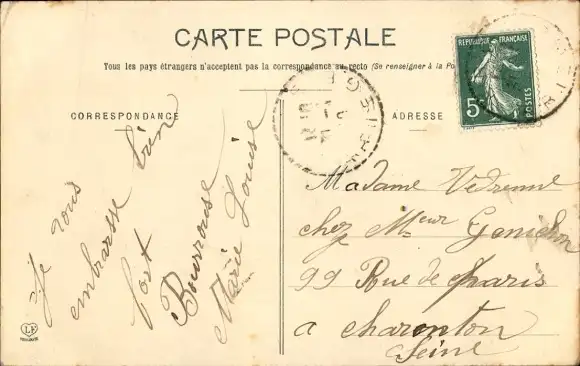 CARTE POSTALE
Tous les pays étrangers n'acceptent pas la correspondance au recto (Se renseigner à la Po
CORRESPONDANCE
ADRESSE
REPUBLIQUE FRANÇAISE
5c
POSTES
Je vous
embrasse bien
fort
Bourrouse
Marie Louise
Madame Vedrenne
chez Meur
99 Rue de Paris
a charenton
Seine